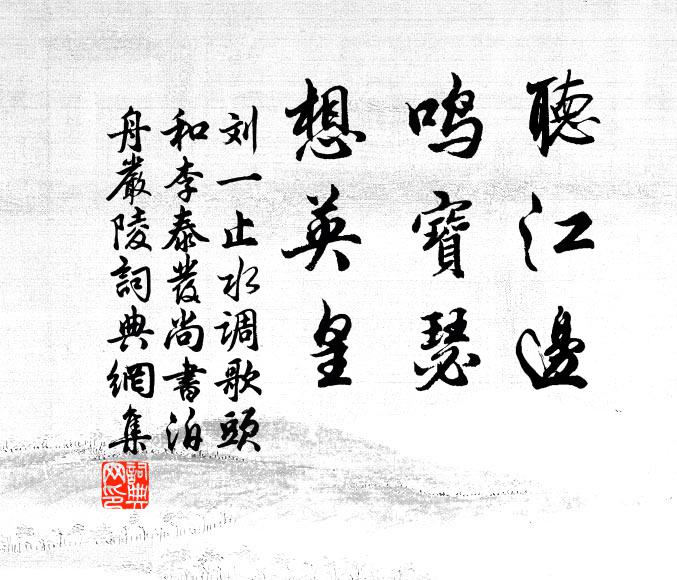 聽江邊
鳴寶瑟
想英皇
刘一止水调歌頭
和李泰發尚書泊
舟嚴陵詞典網集
詞典
网印